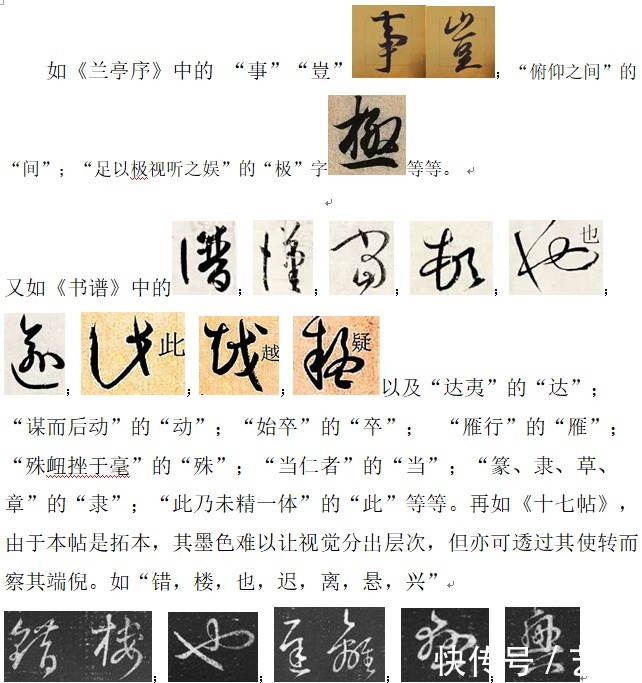 如《兰亭序》中的 “事”“豈” 事 豈 ；“俯仰之间”的
“间”；“足以极视听之娱”的“极”字 極 等等。
又如《书谱》中的 ； ； ； ； 也 也 ；
； 此 此 ； 越 越 ； 疑 以及“达夷”的“达”；
“谋而后动”的“动”；“始卒”的“卒”； “雁行”的“雁”；
“殊衄挫于毫”的“殊”；“当仁者”的“当”；“篆、隶、草、
章”的“隶”；“此乃未精一体”的“此”等等。再如《十七帖》，
由于本帖是拓本，其墨色难以让视觉分出层次，但亦可透过其使转而
察其端倪。如“错，楼，也，迟，离，悬，兴”
错 楼 ； 也 ； 迟 離 ； 懸 ； 興 ；
快传号 / 艺